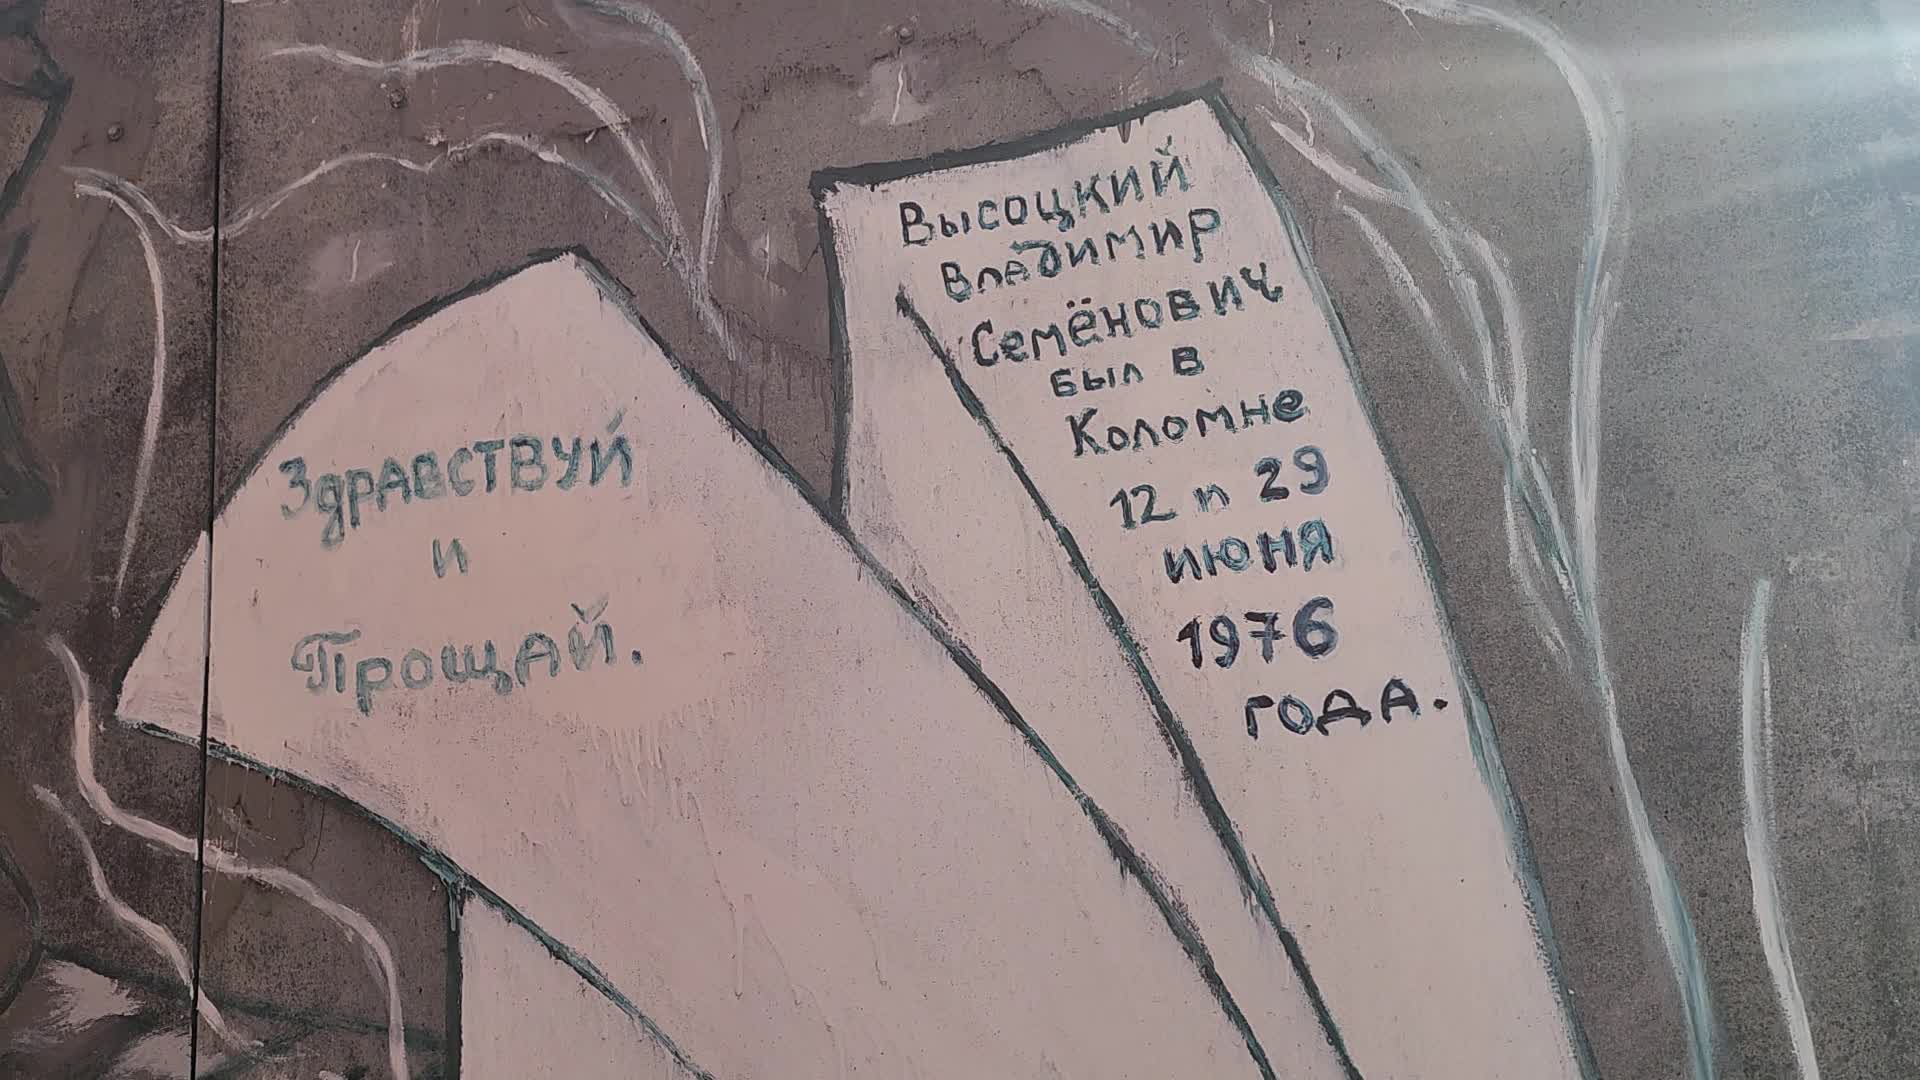 Здравствуй
и
Прощай.
Высоцкий
Владимир
Семёнович
был в
Коломне
12 и 29
июня
1976
года.